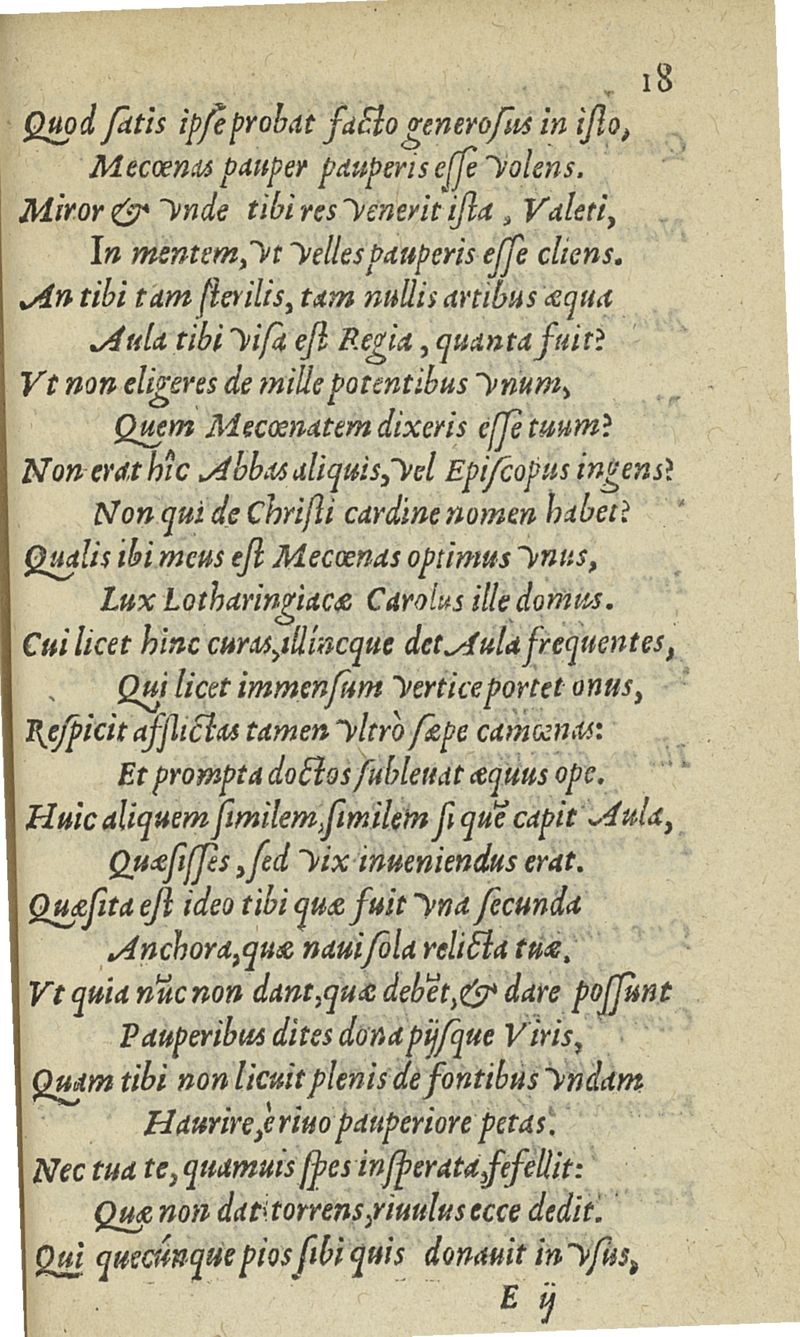 18
Quod ſatis ipſe probat facto generoſus in iſto,
Mecœnas pauper pauperis eſſe volens.
Miror & vnde tibi res venerit iſta, Valeti,
In mentem, vt velles pauperis eſſe cliens.
An tibi tam ſterilis, tam nullis artibus æqua
Aula tibi viſa eſt Regia, quanta fuit?
Vt non eligeres de mille potentibus vnum,
Quem Mecœnatem dixeris eſſe tuum?
Non erat hîc Abbas aliquis, vel Epiſcopus ingens?
Non qui de Chriſti cardine nomen habet?
Qualis ibi meus eſt Mecœnas optimus vnus,
Lux Lotharingiacæ Carolus ille domus.
Cui licet hinc curas, illíncque det Aula frequentes,
Qui licet immenſum vertice portet onus,
Reſpicit afflictas tamen vltrò ſæpe camœnas:
Et prompta doctos ſubleuat æquus ope.
Huic aliquem ſimilem, ſimilem ſi quē capit Aula,
Quæſiſſes, ſed vix inueniendus erat.
Quæſita eſt ideo tibi quæ fuit vna ſecunda
Anchora, quæ naui ſola relicta tuæ.
Vt quia nūc non dant, quæ debēt, & dare poſſunt
Pauperibus dites dona pijſque Viris,
Quam tibi non licuit plenis de fontibus vndam
Haurire, è riuo pauperiore petas.
Nec tua te, quamuis ſpes inſperata, fefellit:
Quæ non dat torrens, riuulus ecce dedit.
Qui quecúnque pios ſibi quis donauit in vſus,
E ij